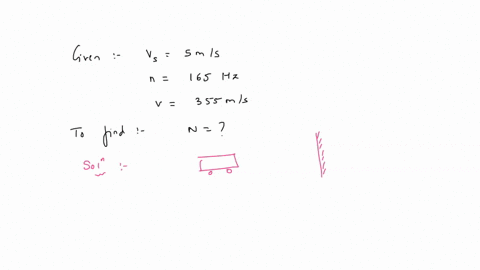 Given :- Vs = 5 m/s
n = 165 Hz
v = 355 m/s
To find :- N = ?
Solⁿ :-